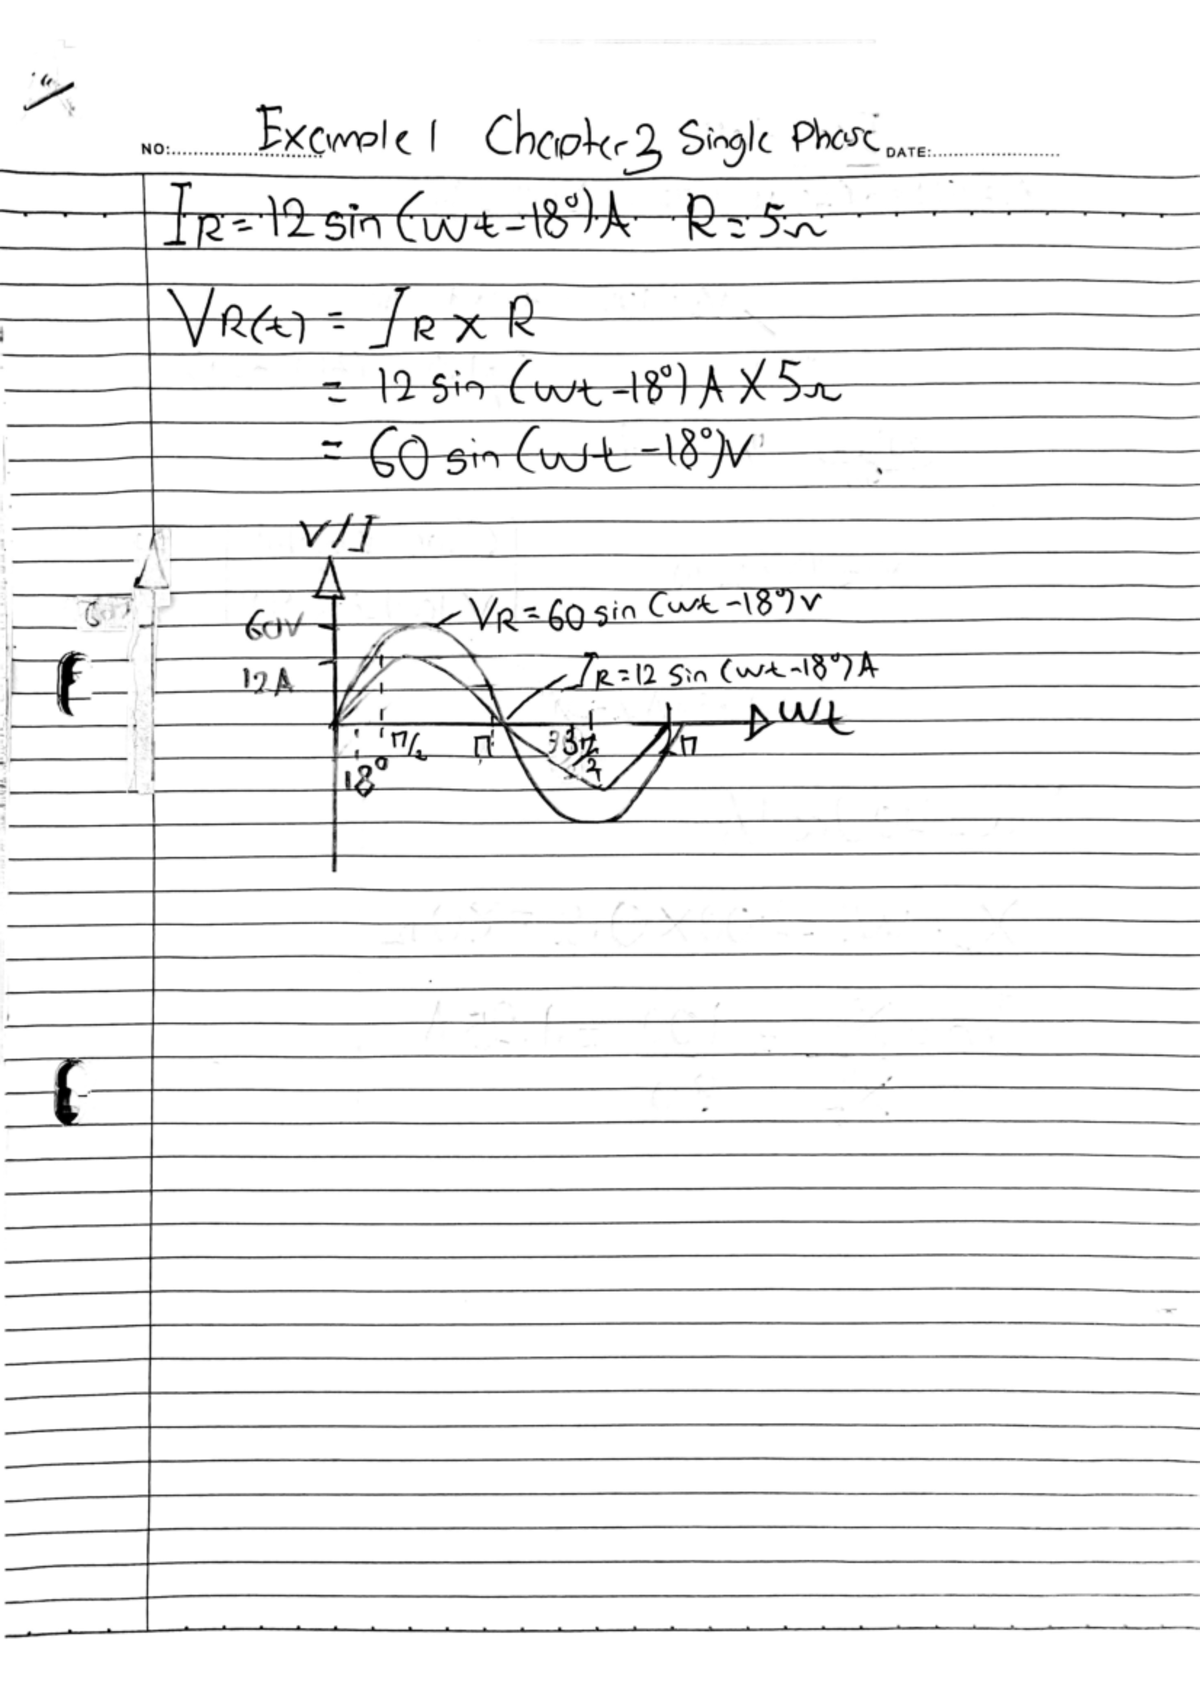 Example 1 Chapter 3 Single Phase
NO: DATE:
IR = 12 sin (wt - 18°) A R = 5Ω
VR(t) = IR x R
= 12 sin (wt - 18°) A X 5Ω
= 60 sin (wt - 18°) V
V/I
60V
VR = 60 sin (wt - 18°) v
12A
IR = 12 sin (wt - 18°) A
wt
π/2 π 3π/2 π
18°